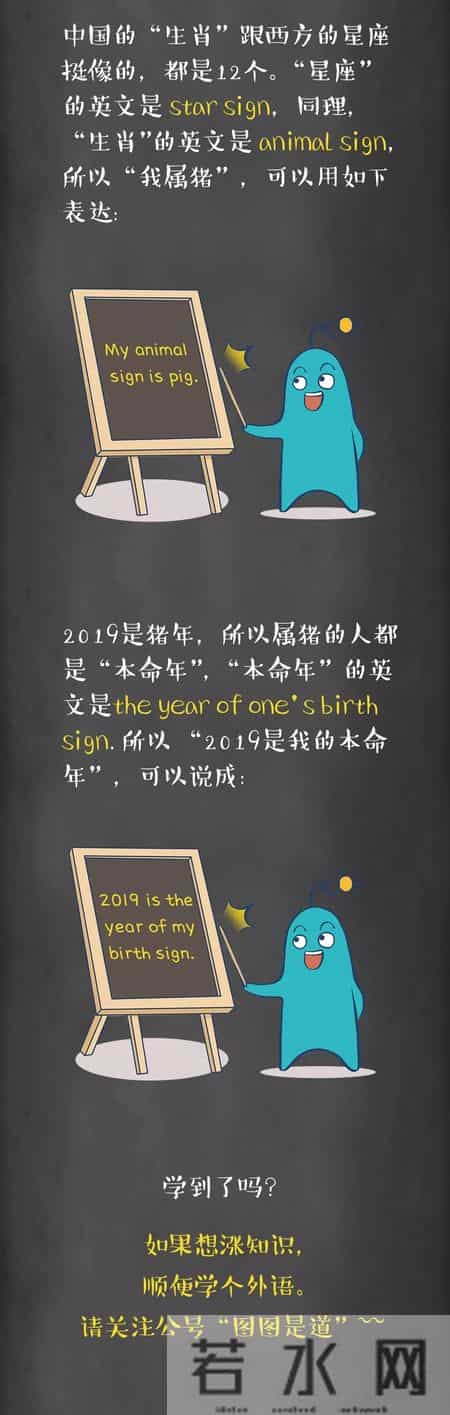 中国的“生肖”跟西方的星座
挺像的，都是12个。“星座”
的英文是 star sign，同理，
“生肖”的英文是 animal sign,
所以“我属猪”，可以用如下
表达:
My animal
sign is pig.
2019是猪年，所以属猪的人都
是“本命年”，“本命年”的英
文是the year of one's birth
sign. 所以 “2019是我的本命
年”，可以说成:
2019 is the
year of my
birth sign.
学到了吗？
如果想涨知识，
顺便学个外语。
请关注公号“图图是道”~~
若水网